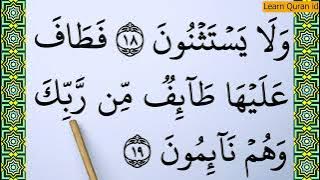 Learn Quran id
وَلَا يَسۡتَثۡنُونَ ١٨ فَطَافَ
عَلَيۡهَا طَآئِفٞ مِّن رَّبِّكَ
وَهُمۡ نَآئِمُونَ ١٩